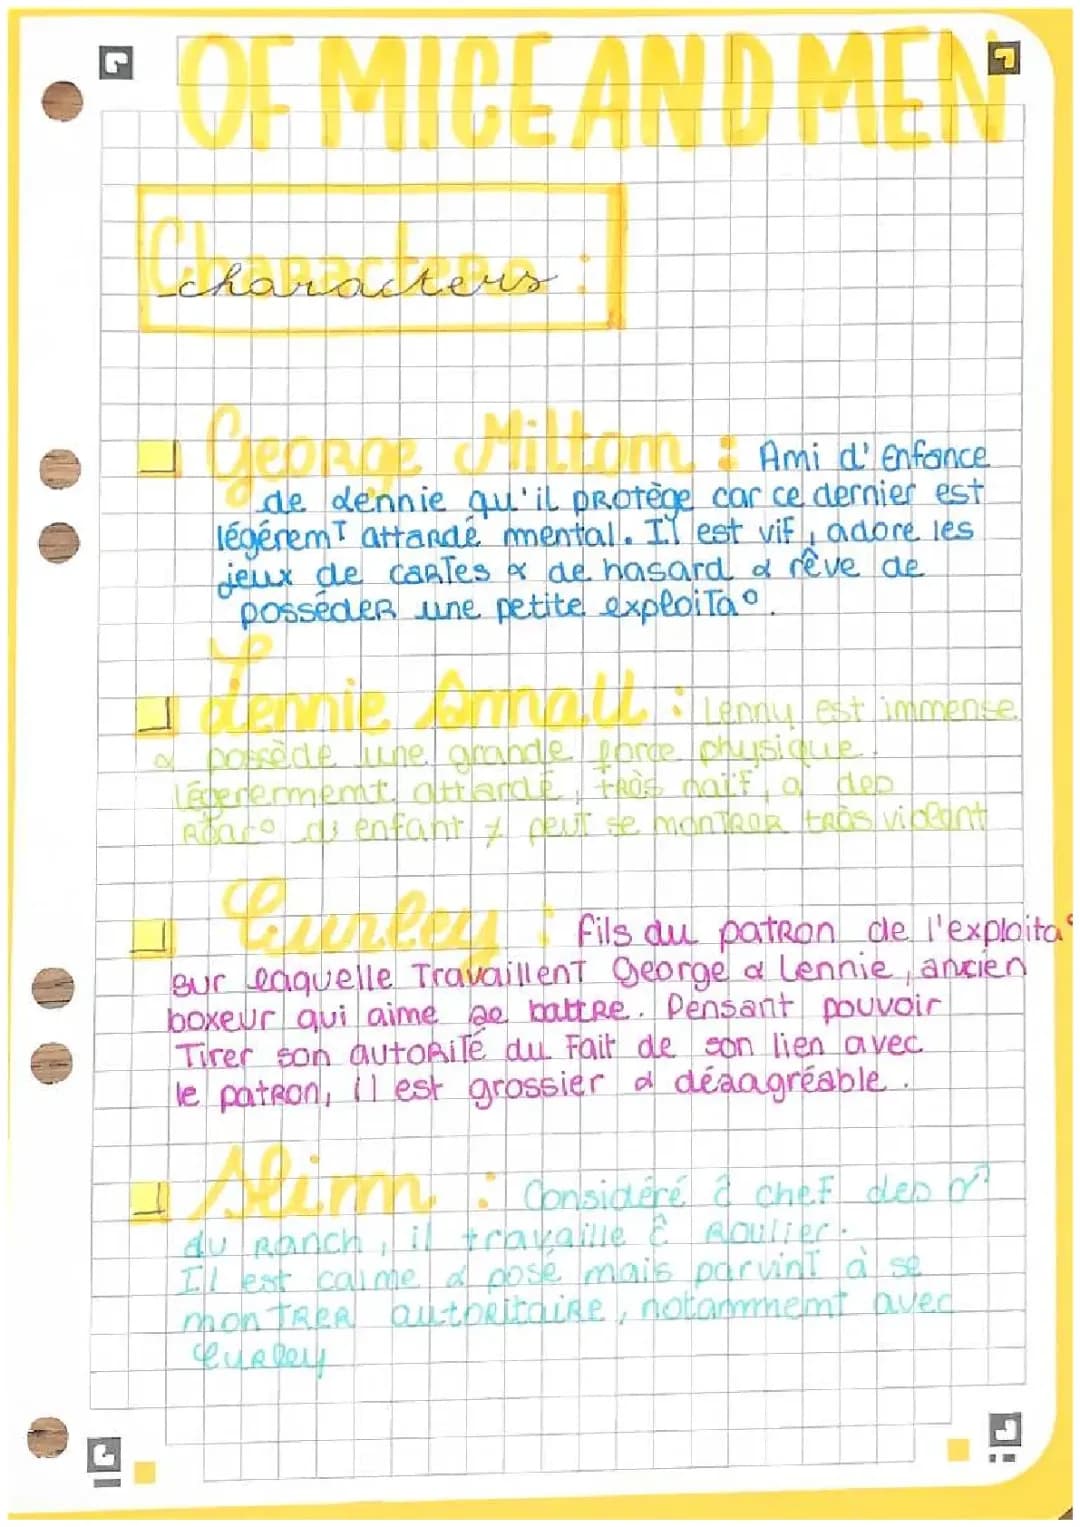 OF MICE AND MEN
Characters :
characters
George Miltom : Ami d'enfance
de Lennie qu'il protège car ce dernier est
légéremT attardé mental. Il est vif, adore les
jeux de cartes & de hasard & rêve de
posséder une petite exploita°.
Lennie Small : Lenny est immense
& possède une grande force physique.
Légerermemt attardé, très naïf, a des
Réac° d's enfant & peut se montrer très violant
Curley : fils du patron de l'exploita°
sur laquelle Travaillent George & Lennie, ancien
boxeur qui aime se battre. Pensant pouvoir
Tirer son autorité du Fait de son lien avec
le patron, il est grossier & désagréable.
Slim : Considéré ê chef des
du Ranch, il travaille ê Roulier.
Il est calme & posé mais parvint à se
montrer autoritaire, notammemt avec
Curley